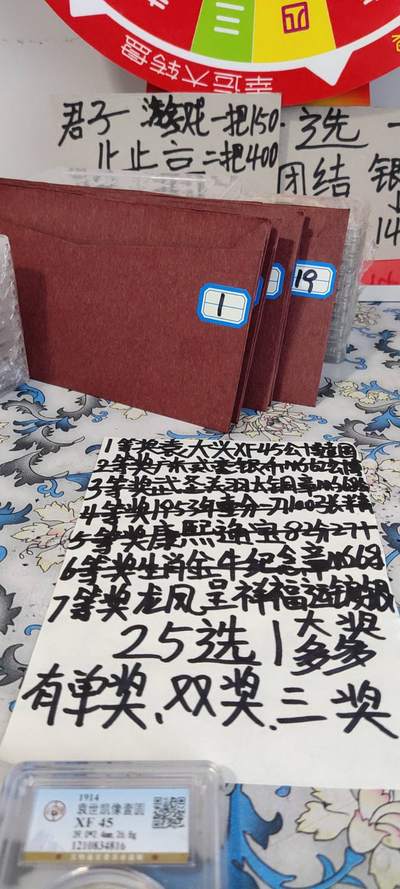 幸运大转盘
君子 游戏一把150
止止言二把400
选一
团结
银
14
1
19
1等奖袁大头XF45公博壹圆
2等奖广东
3等奖武圣关羽大铜章MS68
4等奖1953年壹分一刀100张
5等奖康熙通宝82分
6等奖生肖金牛纪念章MS68
7等奖龙凤呈祥福运
25选1大奖多多
有单奖,双奖,三奖
1914
袁世凯像壹圆
XF 45
1210834816